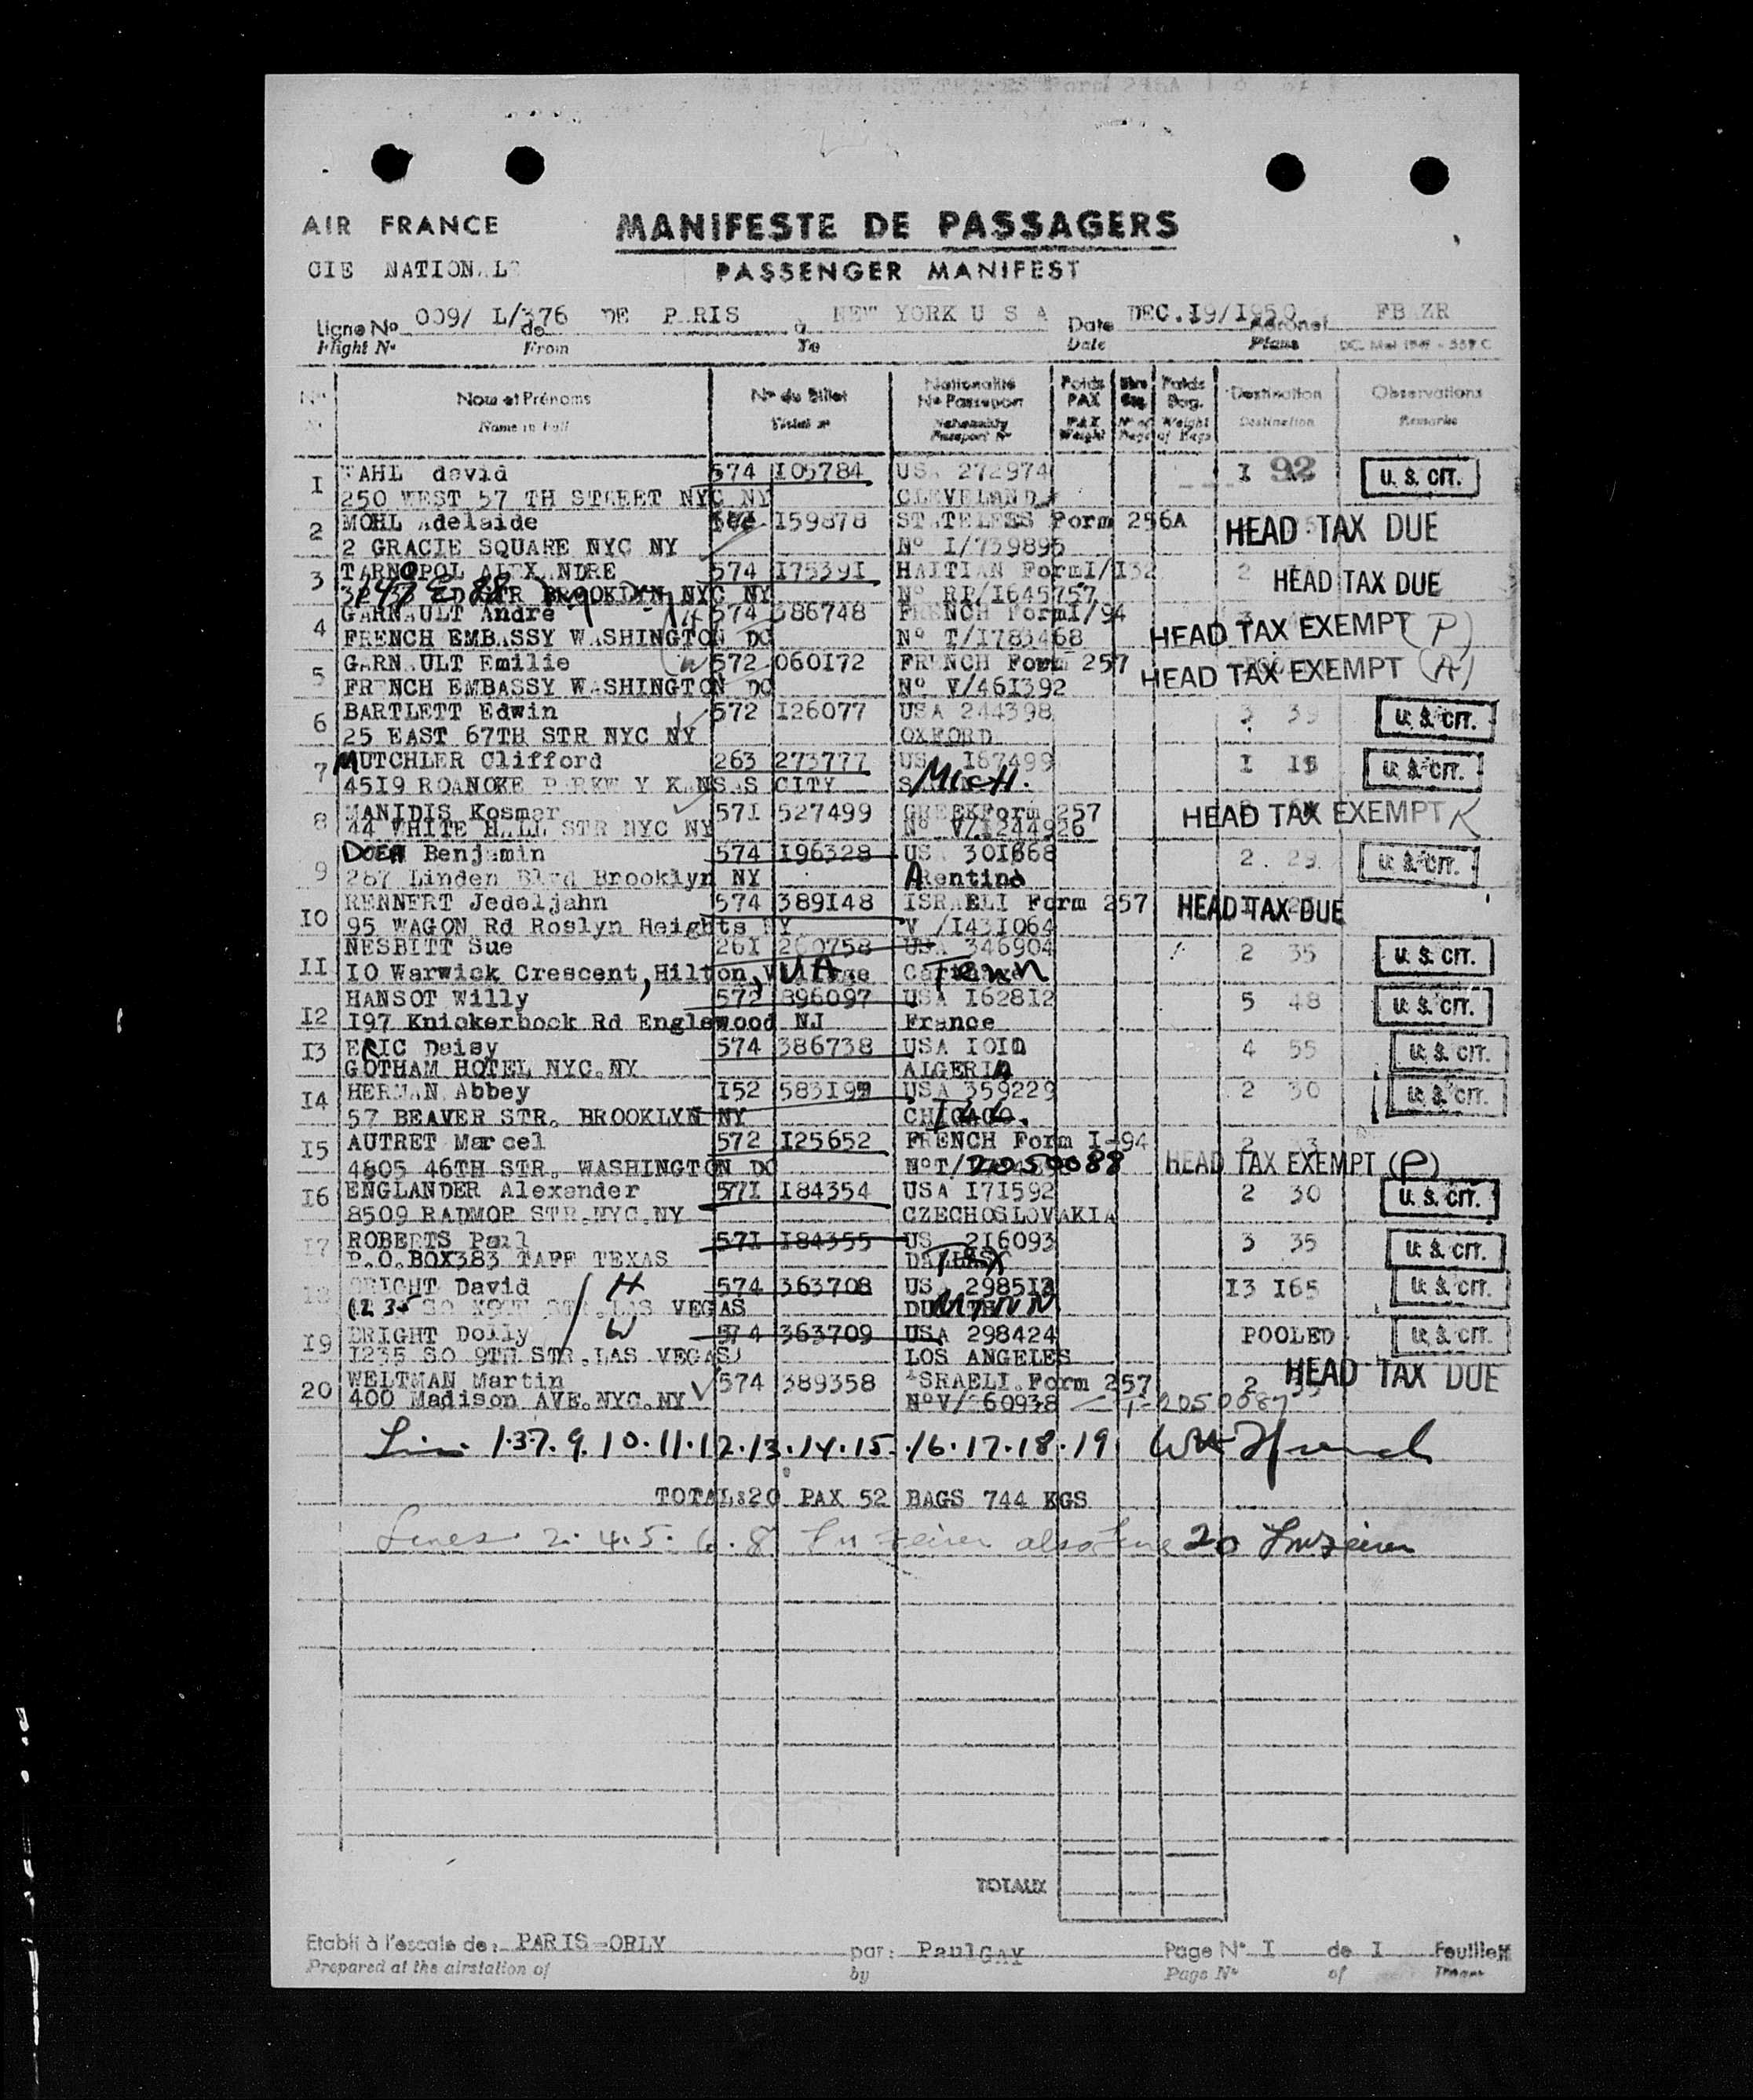 AIR FRANCE
MANIFESTE DE PASSAGERS
CIE NATIONALE
PASSENGER MANIFEST
Ligne No 009/ L/376 de DE PARIS à NEW YORK U S A Date DEC.I9/I950 Aéronef FBAZR
Flight No From To Date Plane
No Nom et Prénoms No du Billet Nationalité No Passeport Poids PAX Nbre Bag. Poids Bag. Destination Observations
Name in full Ticket No Nationality Passport No PAX Weight No of Bags Weight of Bags Destination Remarks
I WAHL david 574 I05784 USA 272974 I 92 U. S. CIT.
250 WEST 57 TH STREET NYC NY CLEVELAND
2 MOHL Adelaide I59878 STATELESS Form 256A HEAD TAX DUE
2 GRACIE SQUARE NYC NY No I/739895
3 TARNOPOL ALEXANDRE 574 I7539I HAITIAN FormI/I32 2 HEAD TAX DUE
BROOKLYN NYC NY No RP/I645757
4 GARNAULT Andre H 574 386748 FRENCH FormI/94 HEAD TAX EXEMPT (P)
FRENCH EMBASSY WASHINGTON DC No T/I783468
5 GARNAULT Emilie W 572 060I72 FRENCH Form 257 HEAD TAX EXEMPT (A)
FRENCH EMBASSY WASHINGTON DC No V/46I392
6 BARTLETT Edwin 572 I26077 USA 244398 3 39 U. S. CIT.
25 EAST 67TH STR NYC NY OXFORD
7 MUTCHLER Clifford 263 273777 USA I67499 I I5 U. S. CIT.
45I9 ROANOKE PARKWAY KANSAS CITY MICH.
8 MANIDIS Kosmar 57I 527499 GREEKForm 257 HEAD TAX EXEMPT K
44 WHITE HALL STR NYC NY No V/I244926
9 Benjamin 574 I96328 USA 30I668 2 29 U. S. CIT.
267 Linden Blvd Brooklyn NY ARentina
I0 RENNERT Jedeljahn 574 389I48 ISRAELI Form 257 HEAD TAX DUE
95 WAGON Rd Roslyn Heights NY V /I43I064
II NESBITT Sue 26I 260758 USA 346904 2 35 U. S. CIT.
I0 Warwick Crescent, Hilton, Village VA Carthage Tenn
I2 HANSOT Willy 572 896097 USA I628I2 5 48 U. S. CIT.
I97 Knickerbock Rd Englewood NJ France
I3 ERIC Daisy 574 386738 USA 4 55 U. S. CIT.
GOTHAM HOTEL NYC.NY ALGERIA
I4 HERMAN Abbey I52 583I99 USA 359229 2 30 U. S. CIT.
57 BEAVER STR. BROOKLYN NY CHICAGO. Ill.
I5 AUTRET Marcel 572 I25652 FRENCH Form I-94 2 33
4805 46TH STR. WASHINGTON DC NoT/ 2050088 HEAD TAX EXEMPT (P)
I6 ENGLANDER Alexander 57I I84354 USA I7I592 2 30 U. S. CIT.
8509 RADMOR STR.NYC.NY CZECHOSLOVAKIA
I7 ROBERTS Paul 57I I84355 USA 2I6093 3 35 U. S. CIT.
P.O.BOX383 TAFF TEXAS DALLAS TEX
I8 BRIGHT David H 574 363708 USA 2985I3 I3 I65 U. S. CIT.
LAS VEGAS DULUTH MINN
I9 BRIGHT Dolly W 574 363709 USA 298424 POOLED U. S. CIT.
I235 SO 9TH STR.LAS VEGAS LOS ANGELES
20 WELTMAN Martin 574 389358 ISRAELI.Form 257 2 HEAD TAX DUE
400 Madison AVE.NYC.NY NoV/ 60938 T-2050087
1.3.7.9.10.11.12.13.14.15.16.17.18.19
TOTAL:20 PAX 52 BAGS 744 KGS
Lines 2.4.5.6.8 also line 20
TOTAUX
Etabli à l'escale de: PARIS-ORLY par: PaulGAY Page No I de I Feuillets
Prepared at the airstation of by Page No of